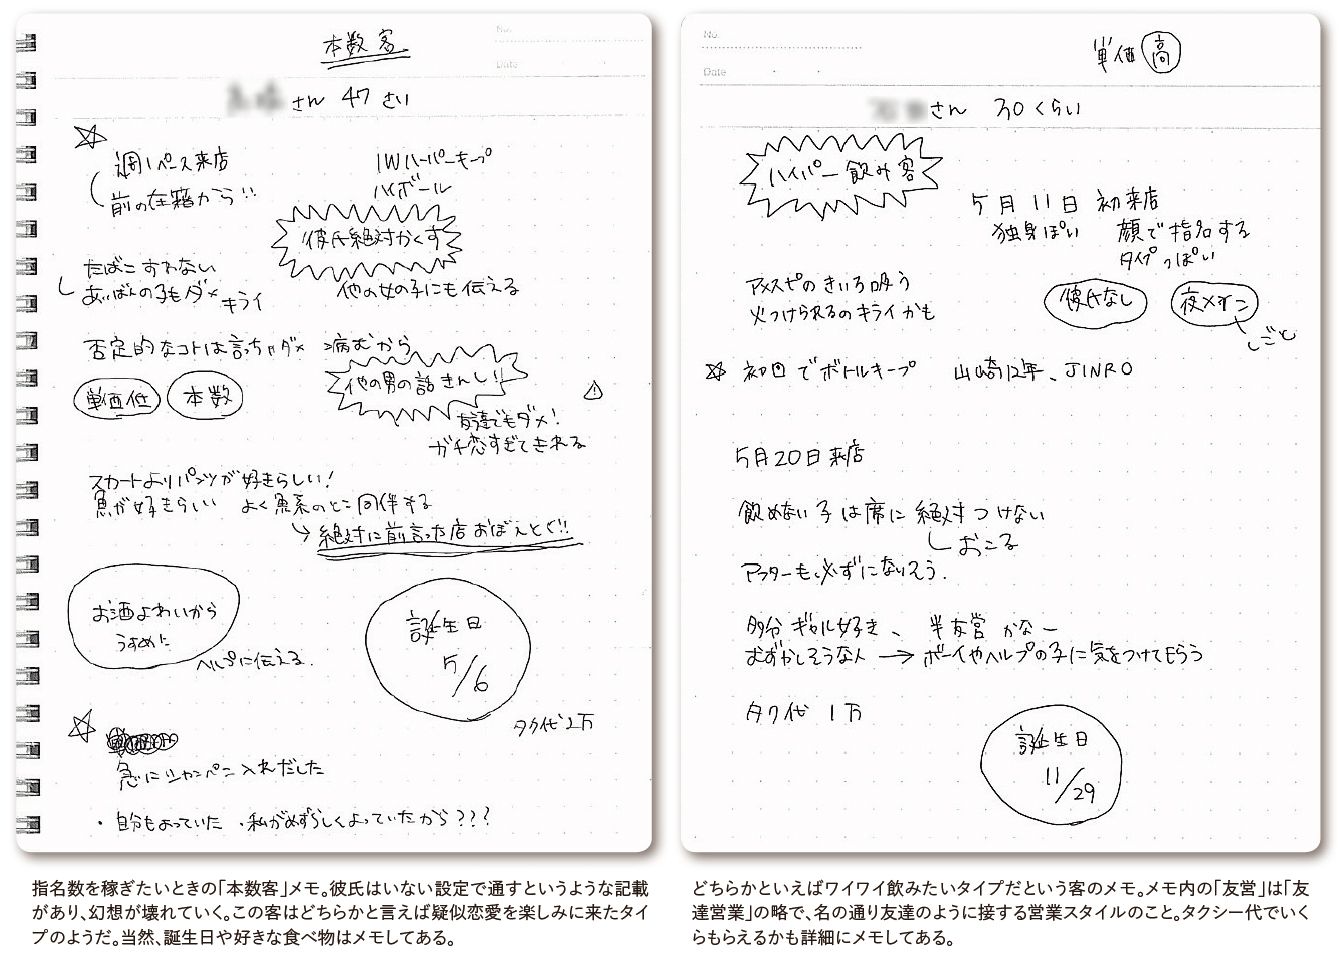 本数客
さん 47さい
週1ペース来店
前の在籍から!!
IWハーパーキープ
ハイボール
彼氏絶対かくす
他の女の子にも伝える
たばこすわない
あいばんの子もダメ キライ
否定的なコトは言っちゃダメ →病むから
単価低 本数
他の男の話きんし!
友達でもダメ!
ガチ恋すぎてきれる
スカートよりパンツが好きらしい!
魚が好きらしい よく魚系のとこ同伴する
→絶対に前言った店おぼえとく!!
お酒よわいから
うすめに
ヘルプに伝える
誕生日
5/6
タク代2万
急にシャンペン入れだした
・自分もよっていた ・私がめずらしくよっていたから???
No.
Date
単価高
さん 30くらい
ハイパー飲み客
5月11日 初来店
独身ぽい 顔で指名する
タイプっぽい
アメスピのきいろ吸う
火つけられるのキライかも
彼氏なし 夜メイン
しごと
☆初回でボトルキープ 山崎12年、JINRO
5月20日来店
飲めない子は席に絶対つけない
おこる
アフターも必ずにないそう.
多分ギャル好き、半友営かなー
むずかしそうな人→ボーイやヘルプの子に気をつけてもらう
タク代 1万
誕生日
11/29
指名数を稼ぎたいときの「本数客」メモ。彼氏はいない設定で通すというような記載
があり、幻想が壊れていく。この客はどちらかと言えば疑似恋愛を楽しみに来たタイ
プのようだ。当然、誕生日や好きな食べ物はメモしてある。
どちらかといえばワイワイ飲みたいタイプだという客のメモ。メモ内の「友営」は「友
達営業」の略で、名の通り友達のように接する営業スタイルのこと。タクシー代でいく
らもらえるかも詳細にメモしてある。